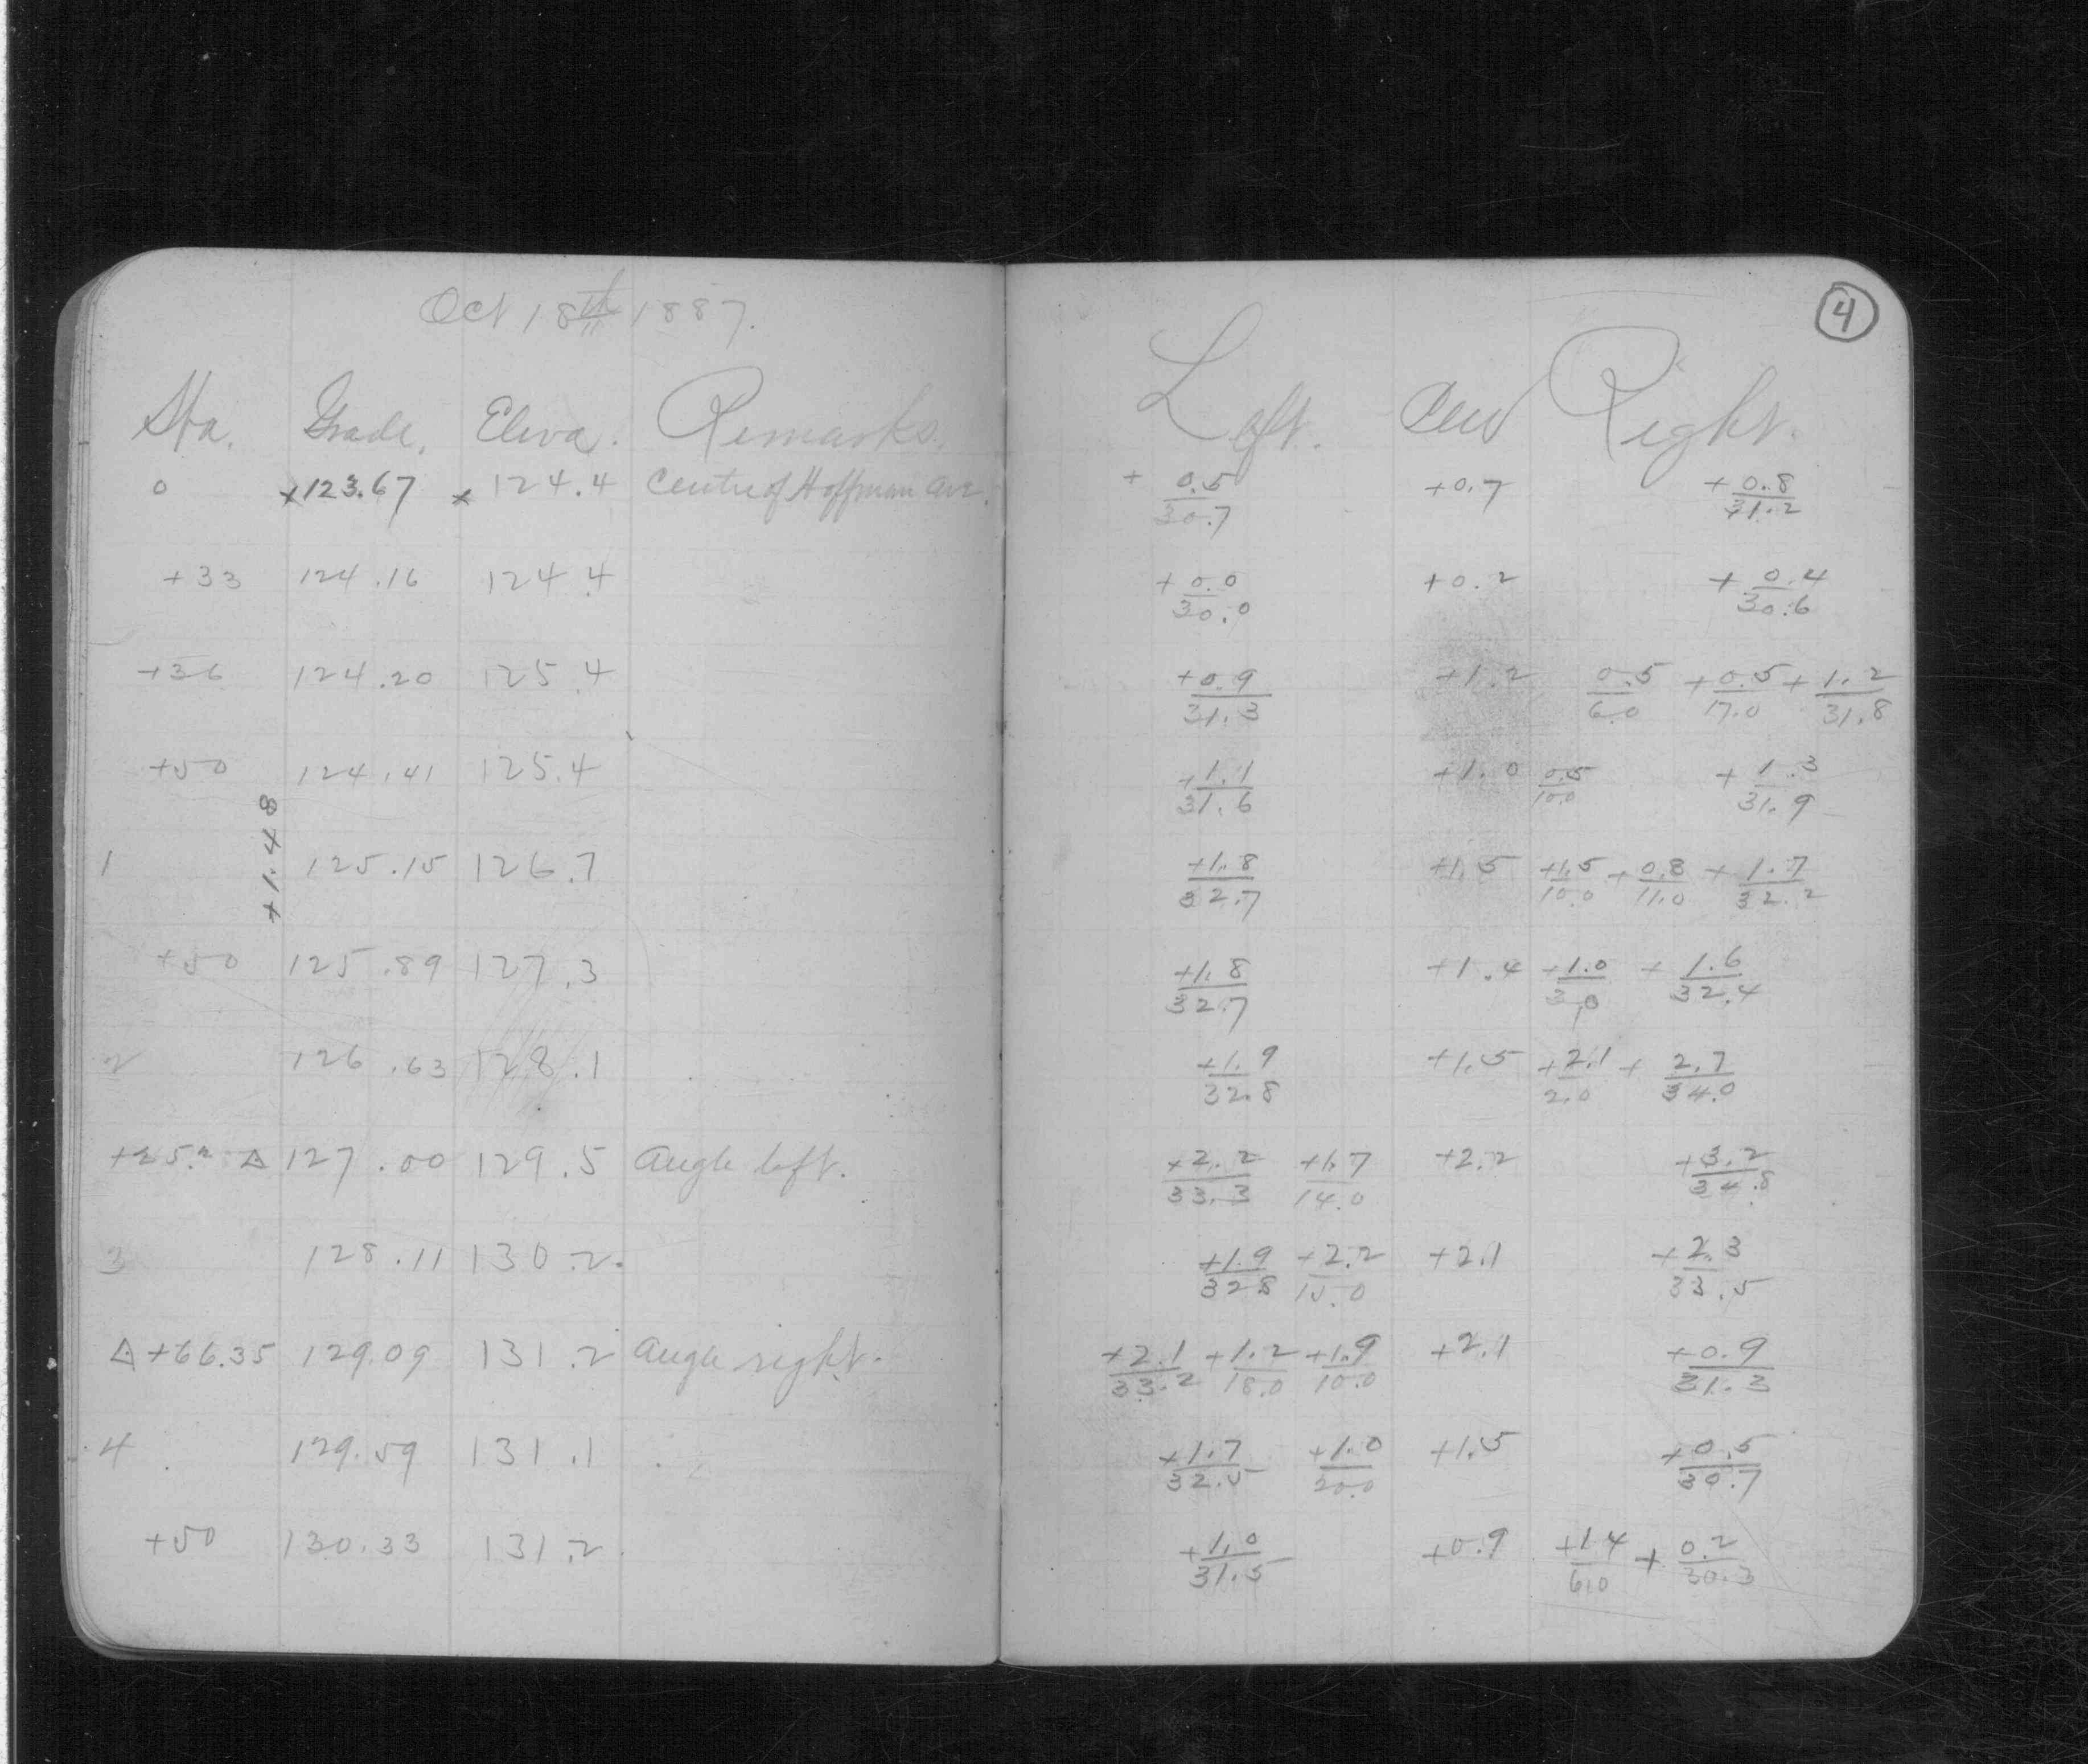 Oct 18th 1887.
Sta. Grade. Eleva. Remarks.
0 x123.67 x 124.4 Centre of Hoffman Ave.
+33 124.16 124.4
+36 124.20 125.4
+50 124.41 125.4
+1.48
1 125.15 126.7
+50 125.89 127.3
2 126.63 128.1
+25.2 △ 127.00 129.5 Angle left.
3 128.11 130.2.
△ +66.35 129.09 131.2 Angle right.
4 129.59 131.1
+50 130.33 131.2
4
Left. Cen Right.
+ 0.5/30.7 +0.7 + 0.8/31.2
+ 0.0/30.0 +0.2 + 0.4/30.6
+0.9/31.3 +1.2 0.5/6.0 +0.5/17.0 + 1.2/31.8
+1.1/31.6 +1.0 0.5/10.0 + 1.3/31.9
+1.8/32.7 +1.5 +1.5/10.0 + 0.8/11.0 + 1.7/32.2
+1.8/32.7 +1.4 +1.0/3.0 + 1.6/32.4
+1.9/32.8 +1.5 +2.1/2.0 + 2.7/34.0
+2.2/33.3 +1.7/14.0 +2.2 +3.2/34.8
+1.9/32.8 +2.2/15.0 +2.1 +2.3/33.5
+2.1/33.2 +1.2/18.0 +1.9/10.0 +2.1 +0.9/31.3
+1.7/32.5 +1.0/20.0 +1.5 +0.5/30.7
+1.0/31.5 +0.9 +1.4/6.0 + 0.2/30.3